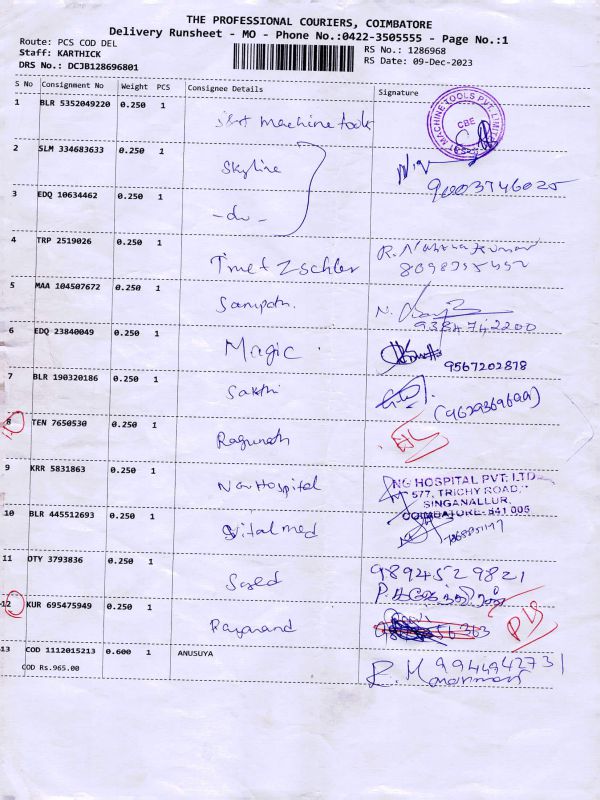 THE PROFESSIONAL COURIERS, COIMBATORE
Delivery Runsheet - MO - Phone No.:0422-3505555 - Page No.:1
Route: PCS COD DEL
RS No.: 1286968
Staff: KARTHICK
RS Date: 09-Dec-2023
DRS No.: DCJB128696801
S No Consignment No Weight PCS Consignee Details Signature
1 BLR 5352049220 0.250 1 machine tools
MACHINE TOOLS PVT. LIMITED
CBE
2 SLM 334683633 0.250 1 Skyline
9003746025
3 EDQ 10634462 0.250 1 -do-
4 TRP 2519026 0.250 1
R.
5 MAA 104507672 0.250 1 Sampath.
N.
9384742200
6 EDQ 23840049 0.250 1 Magic
9567202878
7 BLR 190320186 0.250 1 Sakthi
(9629369699)
8 TEN 7650530 0.250 1 Ragunath
9 KRR 5831863 0.250 1 NG Hospital
NG HOSPITAL PVT. LTD
577, TRICHY ROAD,
SINGANALLUR,
COIMBATORE-641 005
10 BLR 445512693 0.250 1 Vital med
11 OTY 3793836 0.250 1 Sayed
9894529821
12 KUR 695475949 0.250 1
13 COD 1112015213 0.600 1 ANUSUYA
9944942731
R. M
COD Rs.965.00